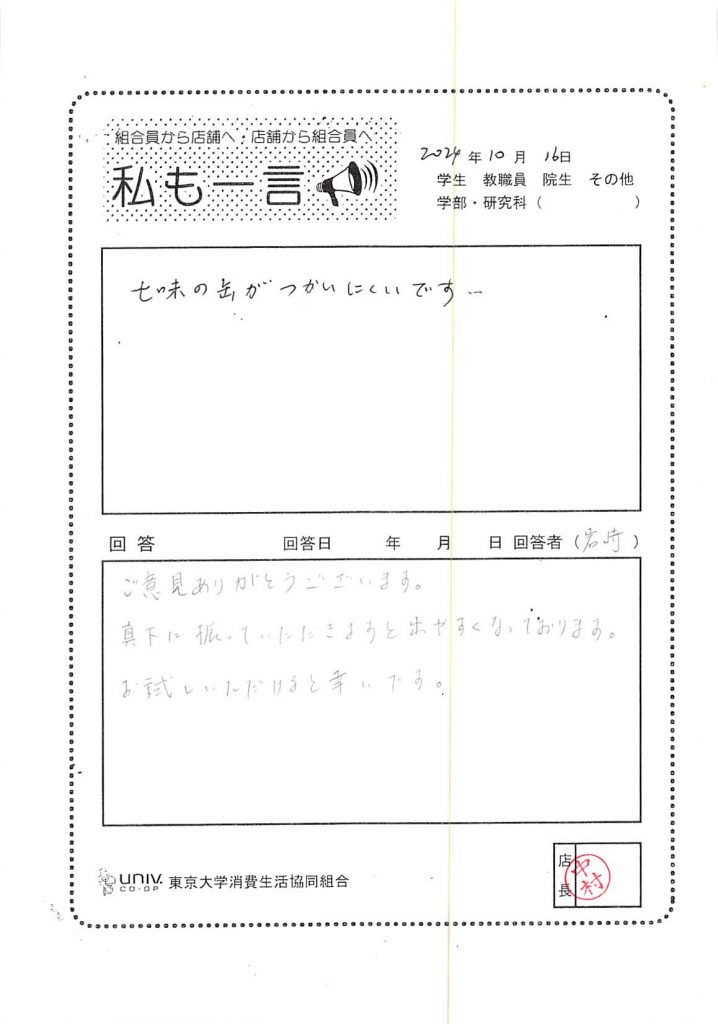 組合員から店舗へ・店舗から組合員へ
私も一言
2024年10月16日
学生 教職員 院生 その他
学部・研究科( )
七味の缶がつかいにくいです…
回答 回答日 年 月 日 回答者(岩崎)
ご意見ありがとうございます。
真下に振っていただきますと出やすくなっております。
お試しいただけると幸いです。
UNIV. CO-OP 東京大学消費生活協同組合
店長
中村